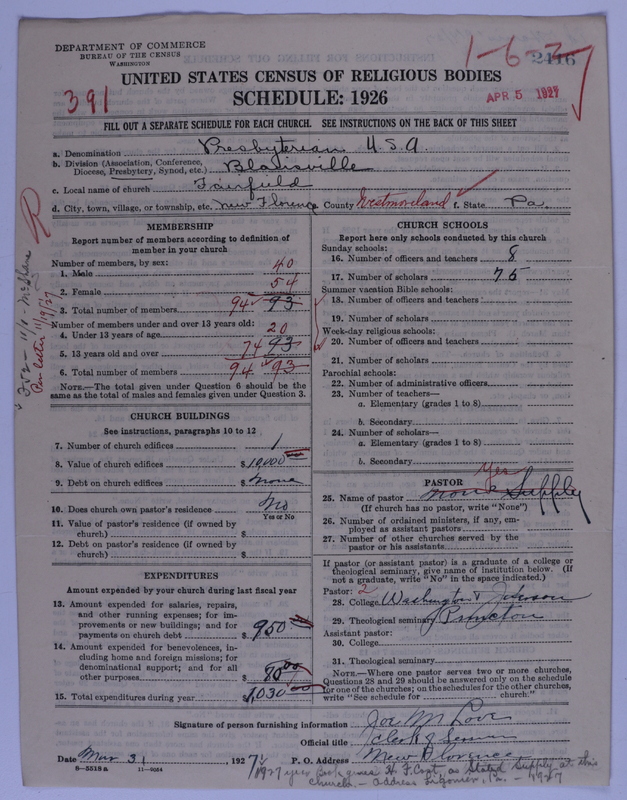 DEPARTMENT OF COMMERCE
BUREAU OF THE CENSUS
WASHINGTON
1-6-3-7
2416
UNITED STATES CENSUS OF RELIGIOUS BODIES
391
SCHEDULE: 1926
APR 5 1927
FILL OUT A SEPARATE SCHEDULE FOR EACH CHURCH. SEE INSTRUCTIONS ON THE BACK OF THIS SHEET
a. Denomination Presbyterian U.S.A.
b. Division (Association, Conference, Diocese, Presbytery, Synod, etc.) Blairsville
c. Local name of church Fairfield
d. City, town, village, or township, etc. New Florence County Westmoreland f. State Pa.
MEMBERSHIP
Report number of members according to definition of
member in your church
Number of members, by sex:
1. Male 40
2. Female 54
3. Total number of members 94 93
Number of members under and over 13 years old:
4. Under 13 years of age 20
5. 13 years old and over 74 93
6. Total number of members 94 93
NOTE.—The total given under Question 6 should be
same as the total of males and females given under Question 3.
Per letter 11/19/27
CHURCH BUILDINGS
See instructions, paragraphs 10 to 12
7. Number of church edifices 1
8. Value of church edifices $10,000
9. Debt on church edifices $ None
10. Does church own pastor's residence No
Yes or No
11. Value of pastor's residence (if owned by
church) $
12. Debt on pastor's residence (if owned by
church) $
EXPENDITURES
Amount expended by your church during last fiscal year
13. Amount expended for salaries, repairs,
and other running expenses; for im-
provements or new buildings; and for
payments on church debt $ 950
14. Amount expended for benevolences, in-
cluding home and foreign missions; for
denominational support; and for all
other purposes $ 80 00
15. Total expenditures during year $1,030 00
CHURCH SCHOOLS
Report here only schools conducted by this church
Sunday schools:
16. Number of officers and teachers 8
17. Number of scholars 75
Summer vacation Bible schools:
18. Number of officers and teachers
19. Number of scholars
Week-day religious schools:
20. Number of officers and teachers
21. Number of scholars
Parochial schools:
22. Number of administrative officers
23. Number of teachers—
a. Elementary (grades 1 to 8)
b. Secondary
24. Number of scholars—
a. Elementary (grades 1 to 8)
b. Secondary
Yes
PASTOR
25. Name of pastor None Supply
(If church has no pastor, write "None")
26. Number of ordained ministers, if any, em-
ployed as assistant pastors
27. Number of other churches served by the
pastor or his assistants
If pastor (or assistant pastor) is a graduate of a college or
theological seminary, give name of institution below. (If
not a graduate, write "No" in the space indicated.)
Pastor: 2
28. College Washington & Jefferson
29. Theological seminary Princeton
Assistant pastor:
30. College
31. Theological seminary
NOTE.—Where one pastor serves two or more churches,
Questions 28 and 29 should be answered only on the schedule
for one of the churches; on the schedules for the other churches,
write "See schedule for church."
Signature of person furnishing information Joe M Love
Official title Clerk of Session
Date Mar 31, 1927 P. O. Address New Florence
6—5518 a 11—9054
1927 year book gives H. F. as Stated Supply at this
church - Address Ligonier, Pa. - 1927